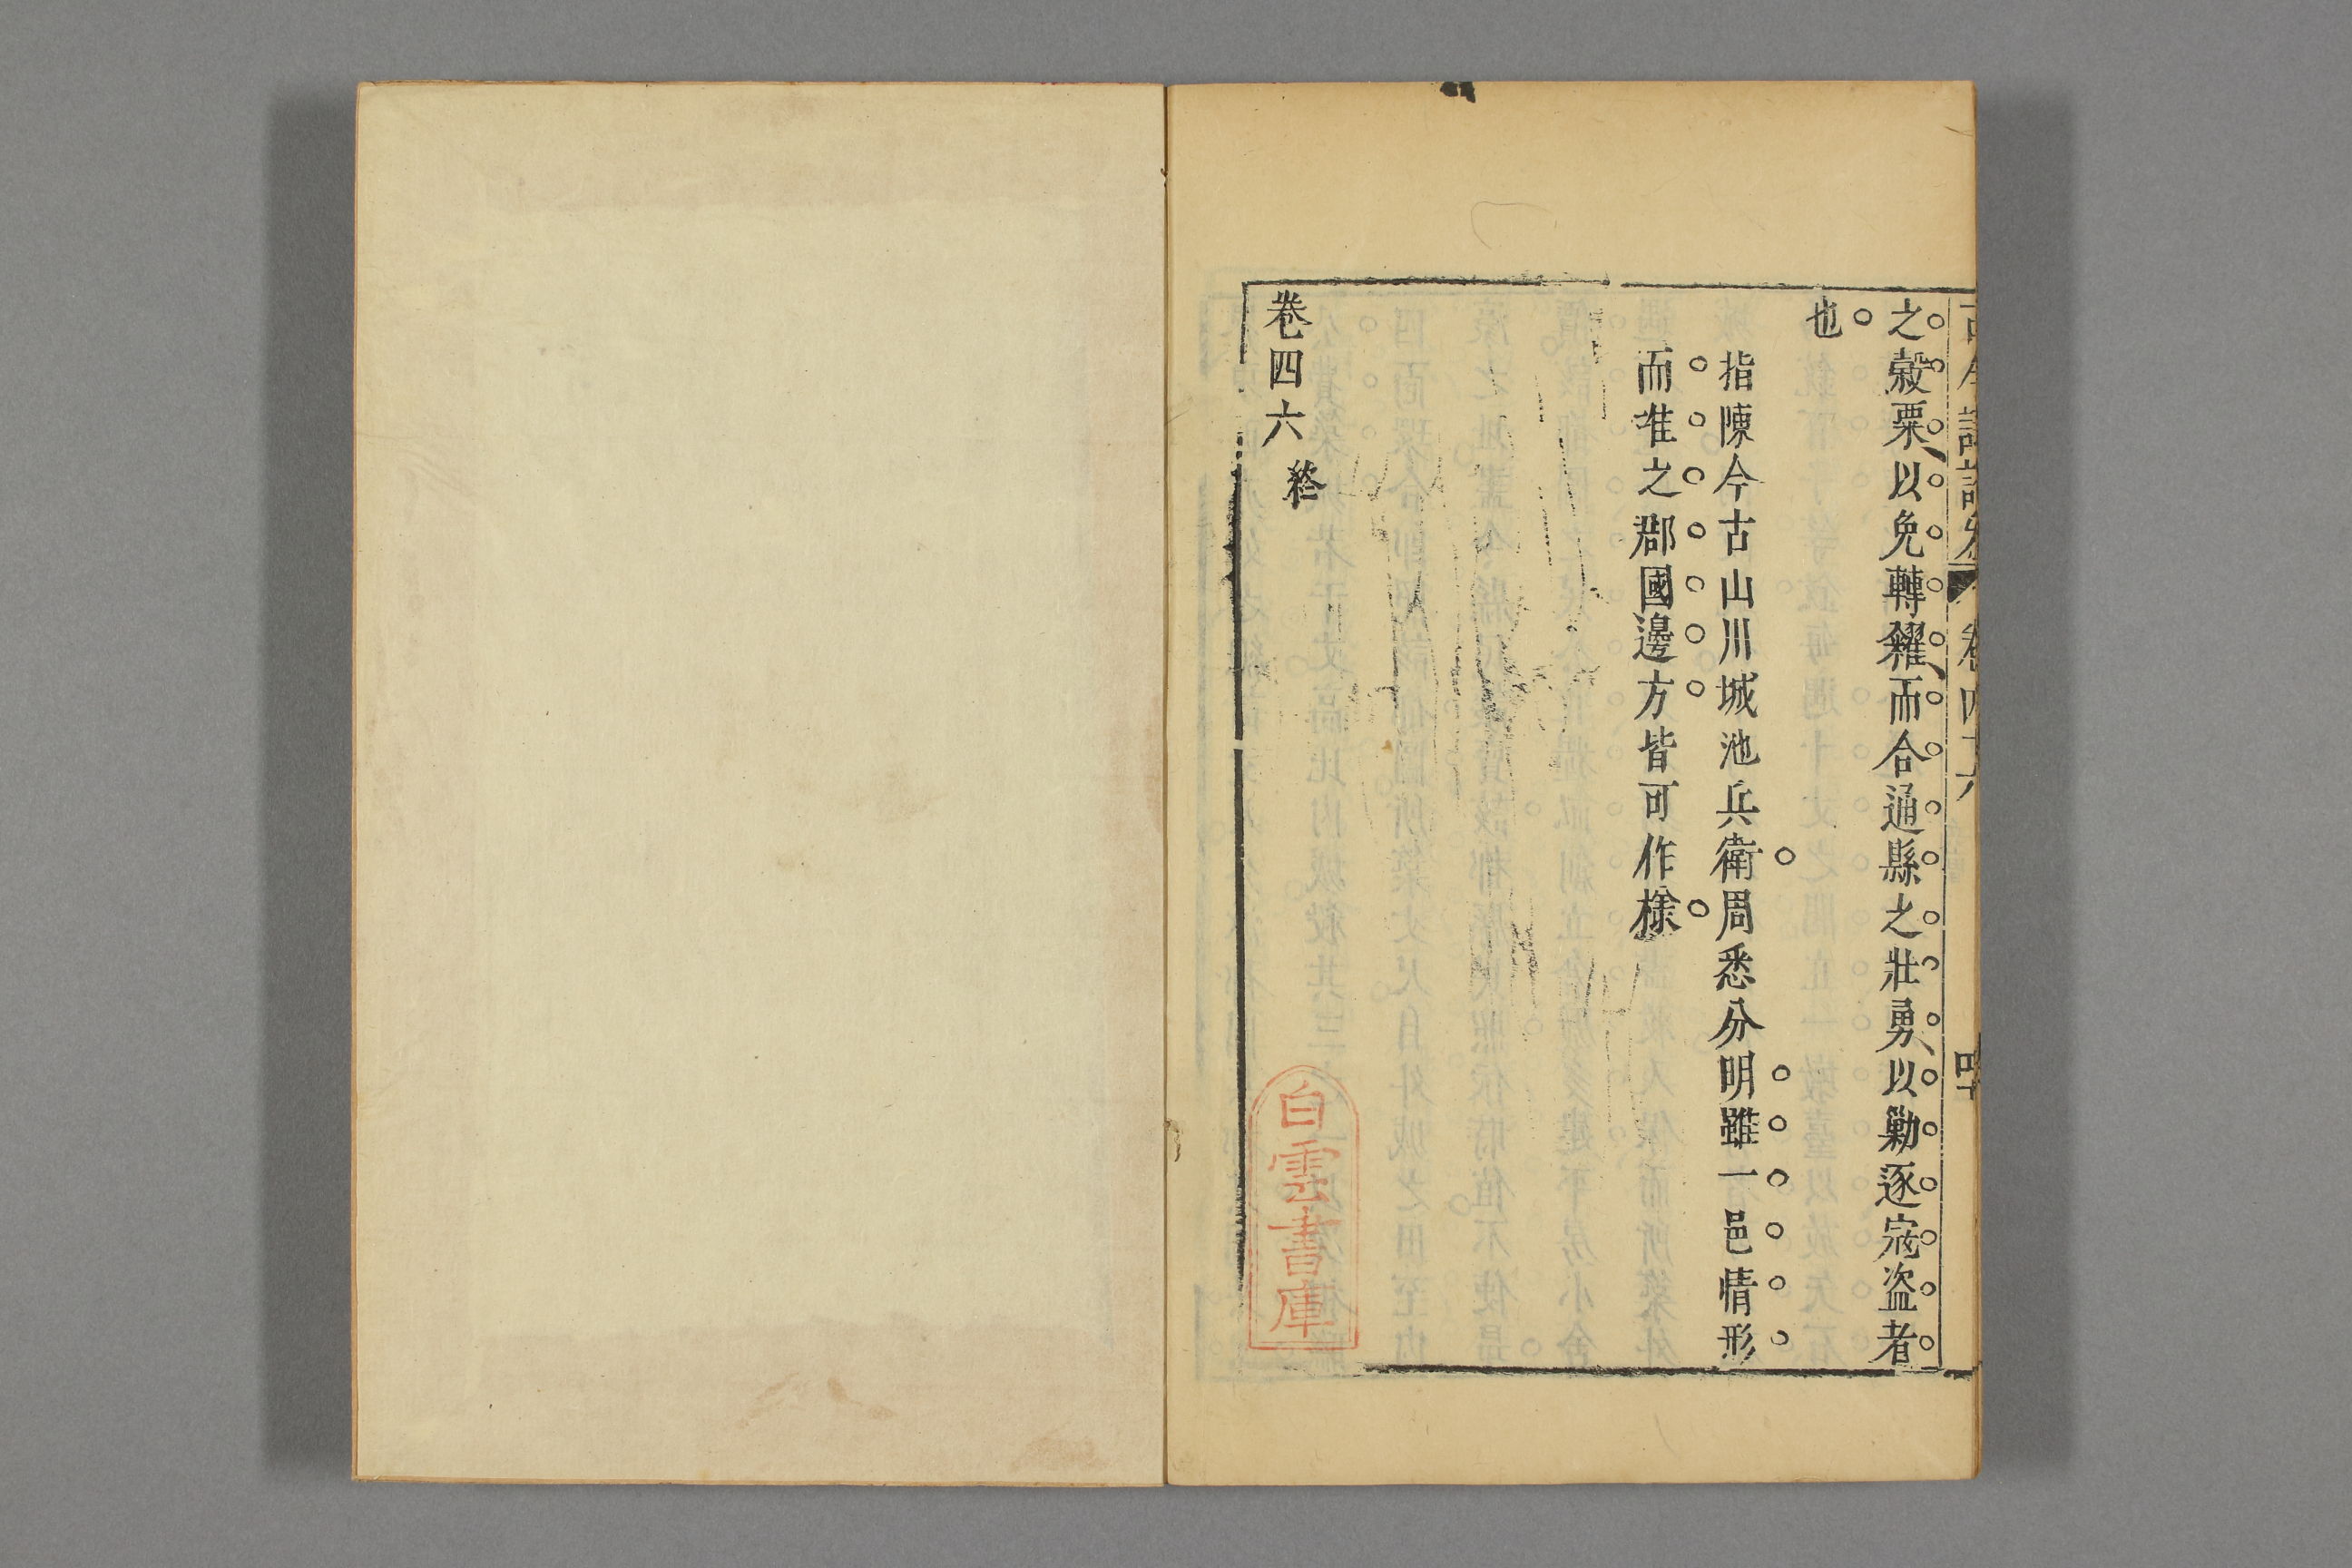 卷四六
之穀粟以免轉糴而合通縣之壯勇以勦逐寇盜者
也
指陳今古山川城池兵衛周悉分明雖一邑情形
而推之郡國邊方皆可作樣
卷四六終
白雲書庫